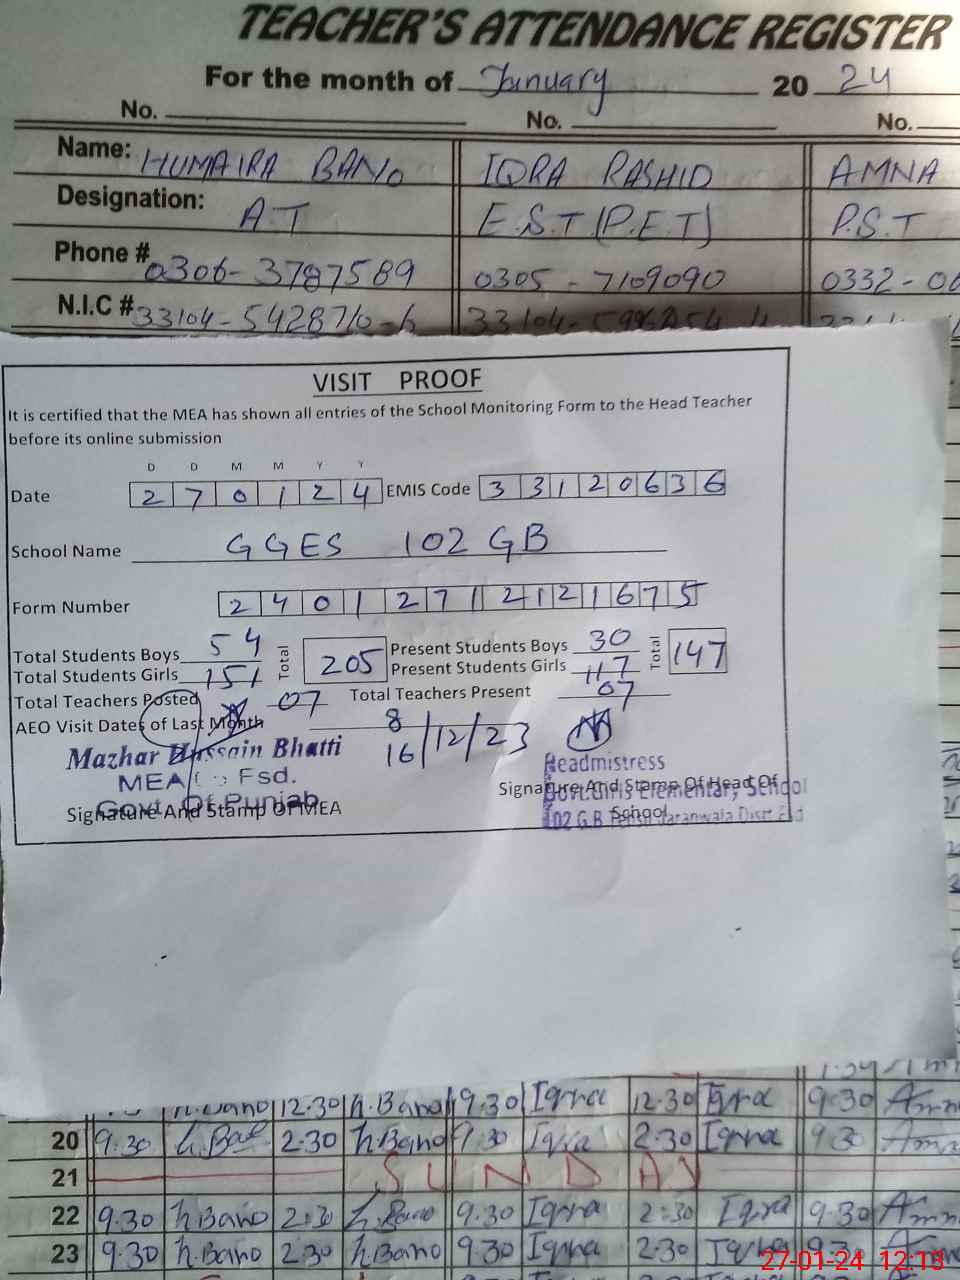 TEACHER'S ATTENDANCE REGISTER
For the month of January 20 24
No. No. No.
Name: HUMAIRA BANO IQRA RASHID AMNA
Designation: A.T E.S.T (P.E.T) P.S.T
Phone # 0306-3787589 0305-7109090 0332-06
N.I.C # 33104-5428710-6 33104-
VISIT PROOF
It is certified that the MEA has shown all entries of the School Monitoring Form to the Head Teacher
before its online submission
D D M M Y Y
Date 2 7 0 1 2 4 EMIS Code 3 3 1 2 0 6 3 6
School Name GGES 102 GB
Form Number 2 4 0 1 2 7 1 2 1 2 1 6 7 5
Total Students Boys 54 Total 205 Present Students Boys 30 Total 147
Total Students Girls 151 Present Students Girls 117
Total Teachers Posted 07 Total Teachers Present 07
AEO Visit Dates of Last Month 8 16/12/23
Mazhar Hussain Bhatti
MEA Fsd.
Govt Of Punjab
Signature And Stamp Of MEA
Headmistress
Signature And Stamp Of Head Of
School
Govt. Girls Elementary School
102 G.B Jaranwala Distt
h.Bano 12.30 h.Bano 9.30 Iqra 12.30 Iqra 9.30 Amn
20 9.30 h.Bano 2.30 h.Bano 9.30 Iqra 2.30 Iqra 9.30 Amn
21 SUNDAY
22 9.30 h.Bano 2:30 h.Bano 9.30 Iqra 2:30 Iqra 9.30 Amn
23 9.30 h.Bano 2.30 h.Bano 9.30 Iqra 2.30 Iqra 9.3
27-01-24 12:13